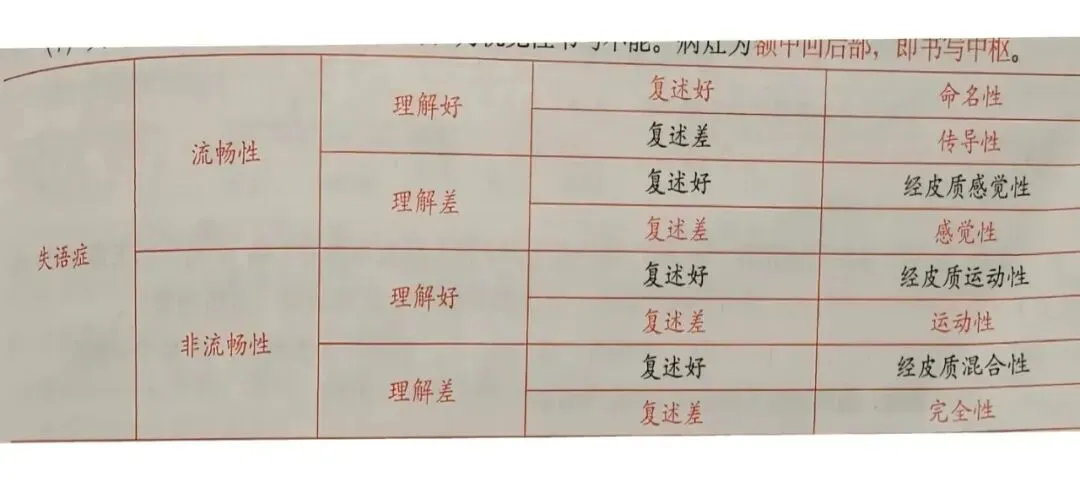 书写不能。病灶为额中回后部，即书写中枢。
失语症
流畅性
理解好
复述好 命名性
复述差 传导性
理解差
复述好 经皮质感觉性
复述差 感觉性
非流畅性
理解好
复述好 经皮质运动性
复述差 运动性
理解差
复述好 经皮质混合性
复述差 完全性